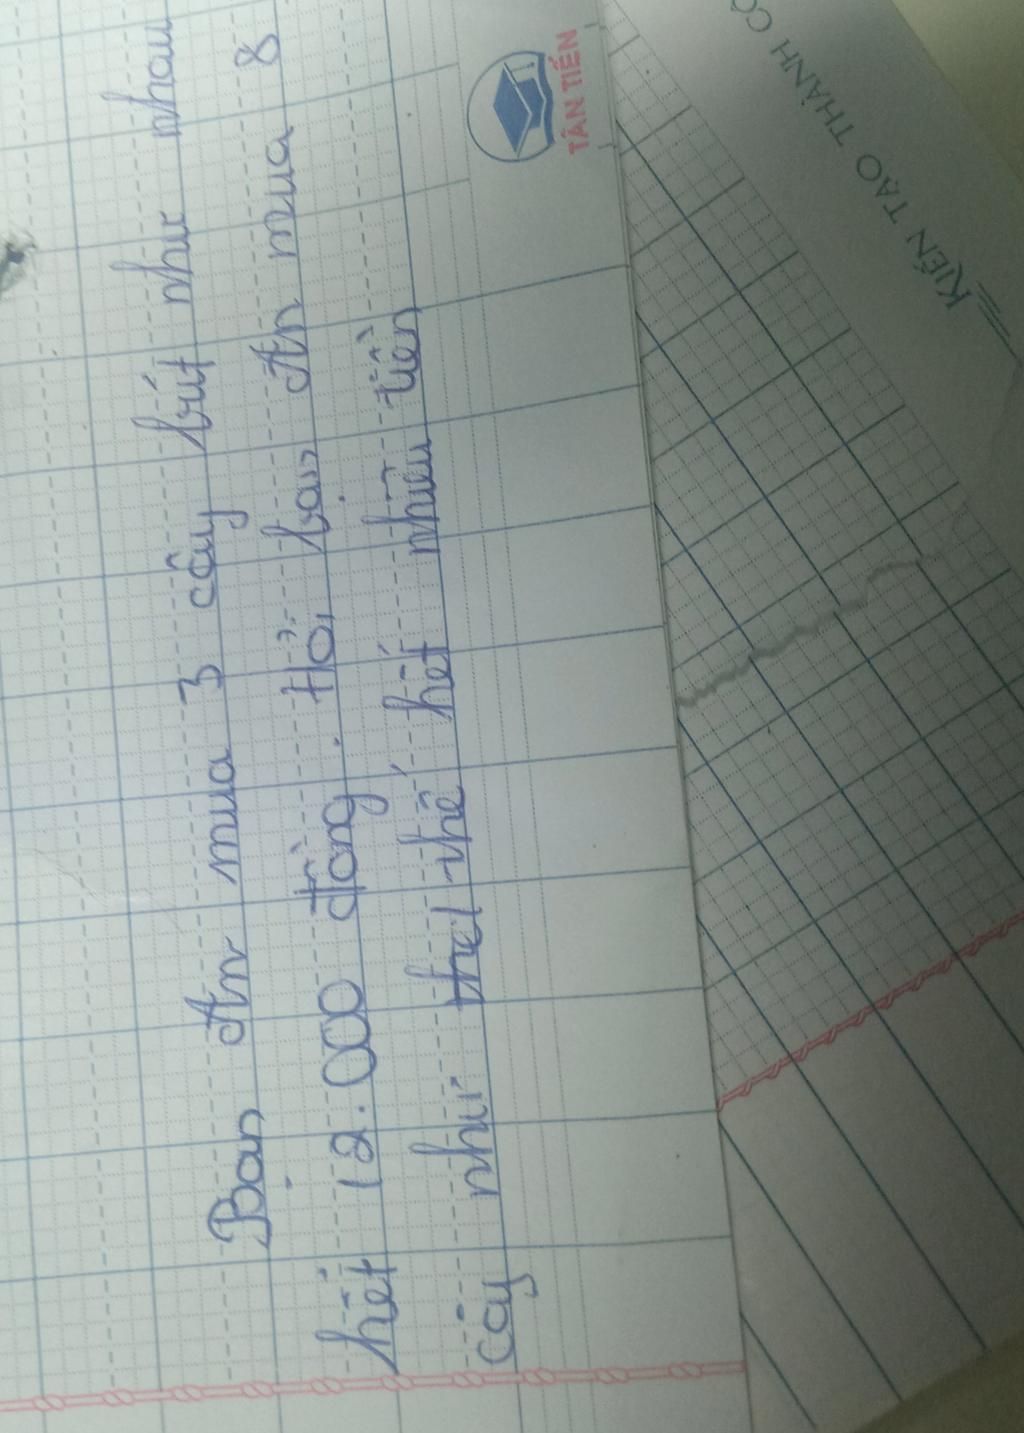 Bạn An mua 3 cây bút như nhau
hết 12.000 đồng. Hỏi bạn An mua 8
cây như thế hết nhiêu tiền
TÂN TIẾN
KIẾN TẠO THÀNH CÔ